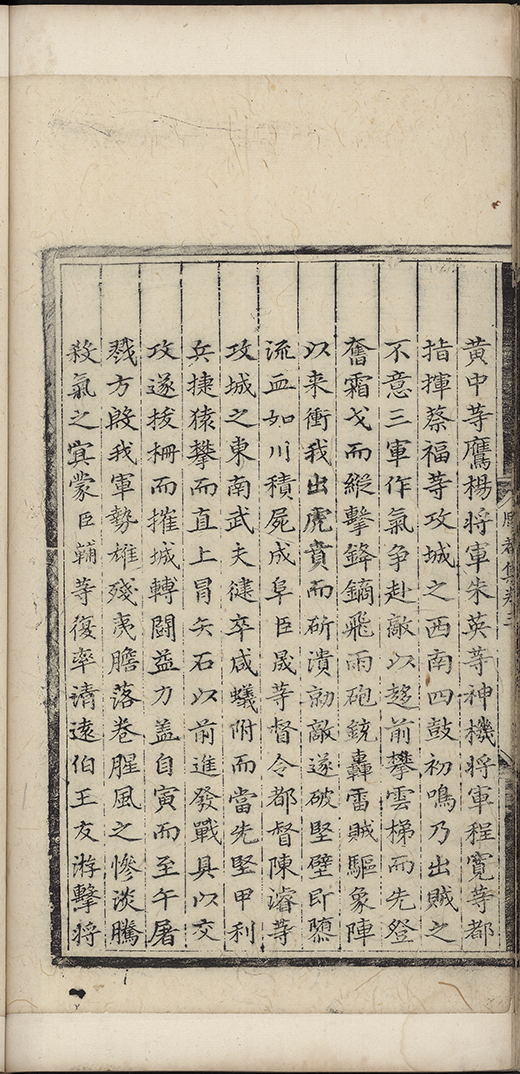 黄中等鷹楊将軍朱英等神機将軍程寛等都
指揮蔡福等攻城之西南四鼓初鳴乃出賊之
不意三軍作氣争赴敵以趍前攀雲梯而先登
奮霜戈而縱擊鋒鏑飛雨砲銃轟雷賊驅象陣
以来衝我出虎賁而斫潰勍敵遂破堅壁即隳
流血如川積屍成阜臣晟等督令都督陳濬等
攻城之東南武夫健卒咸蟻附而當先堅甲利
兵捷猿攀而直上冒矢石以前進發戰具以交
攻遂拔柵而摧城轉闘益力盖自寅而至午屠
戮方殷我軍勢雄殘夷膽落卷腥風之慘淡騰
殺氣之冥蒙臣輔等復率清遠伯王友游擊将
集卷三